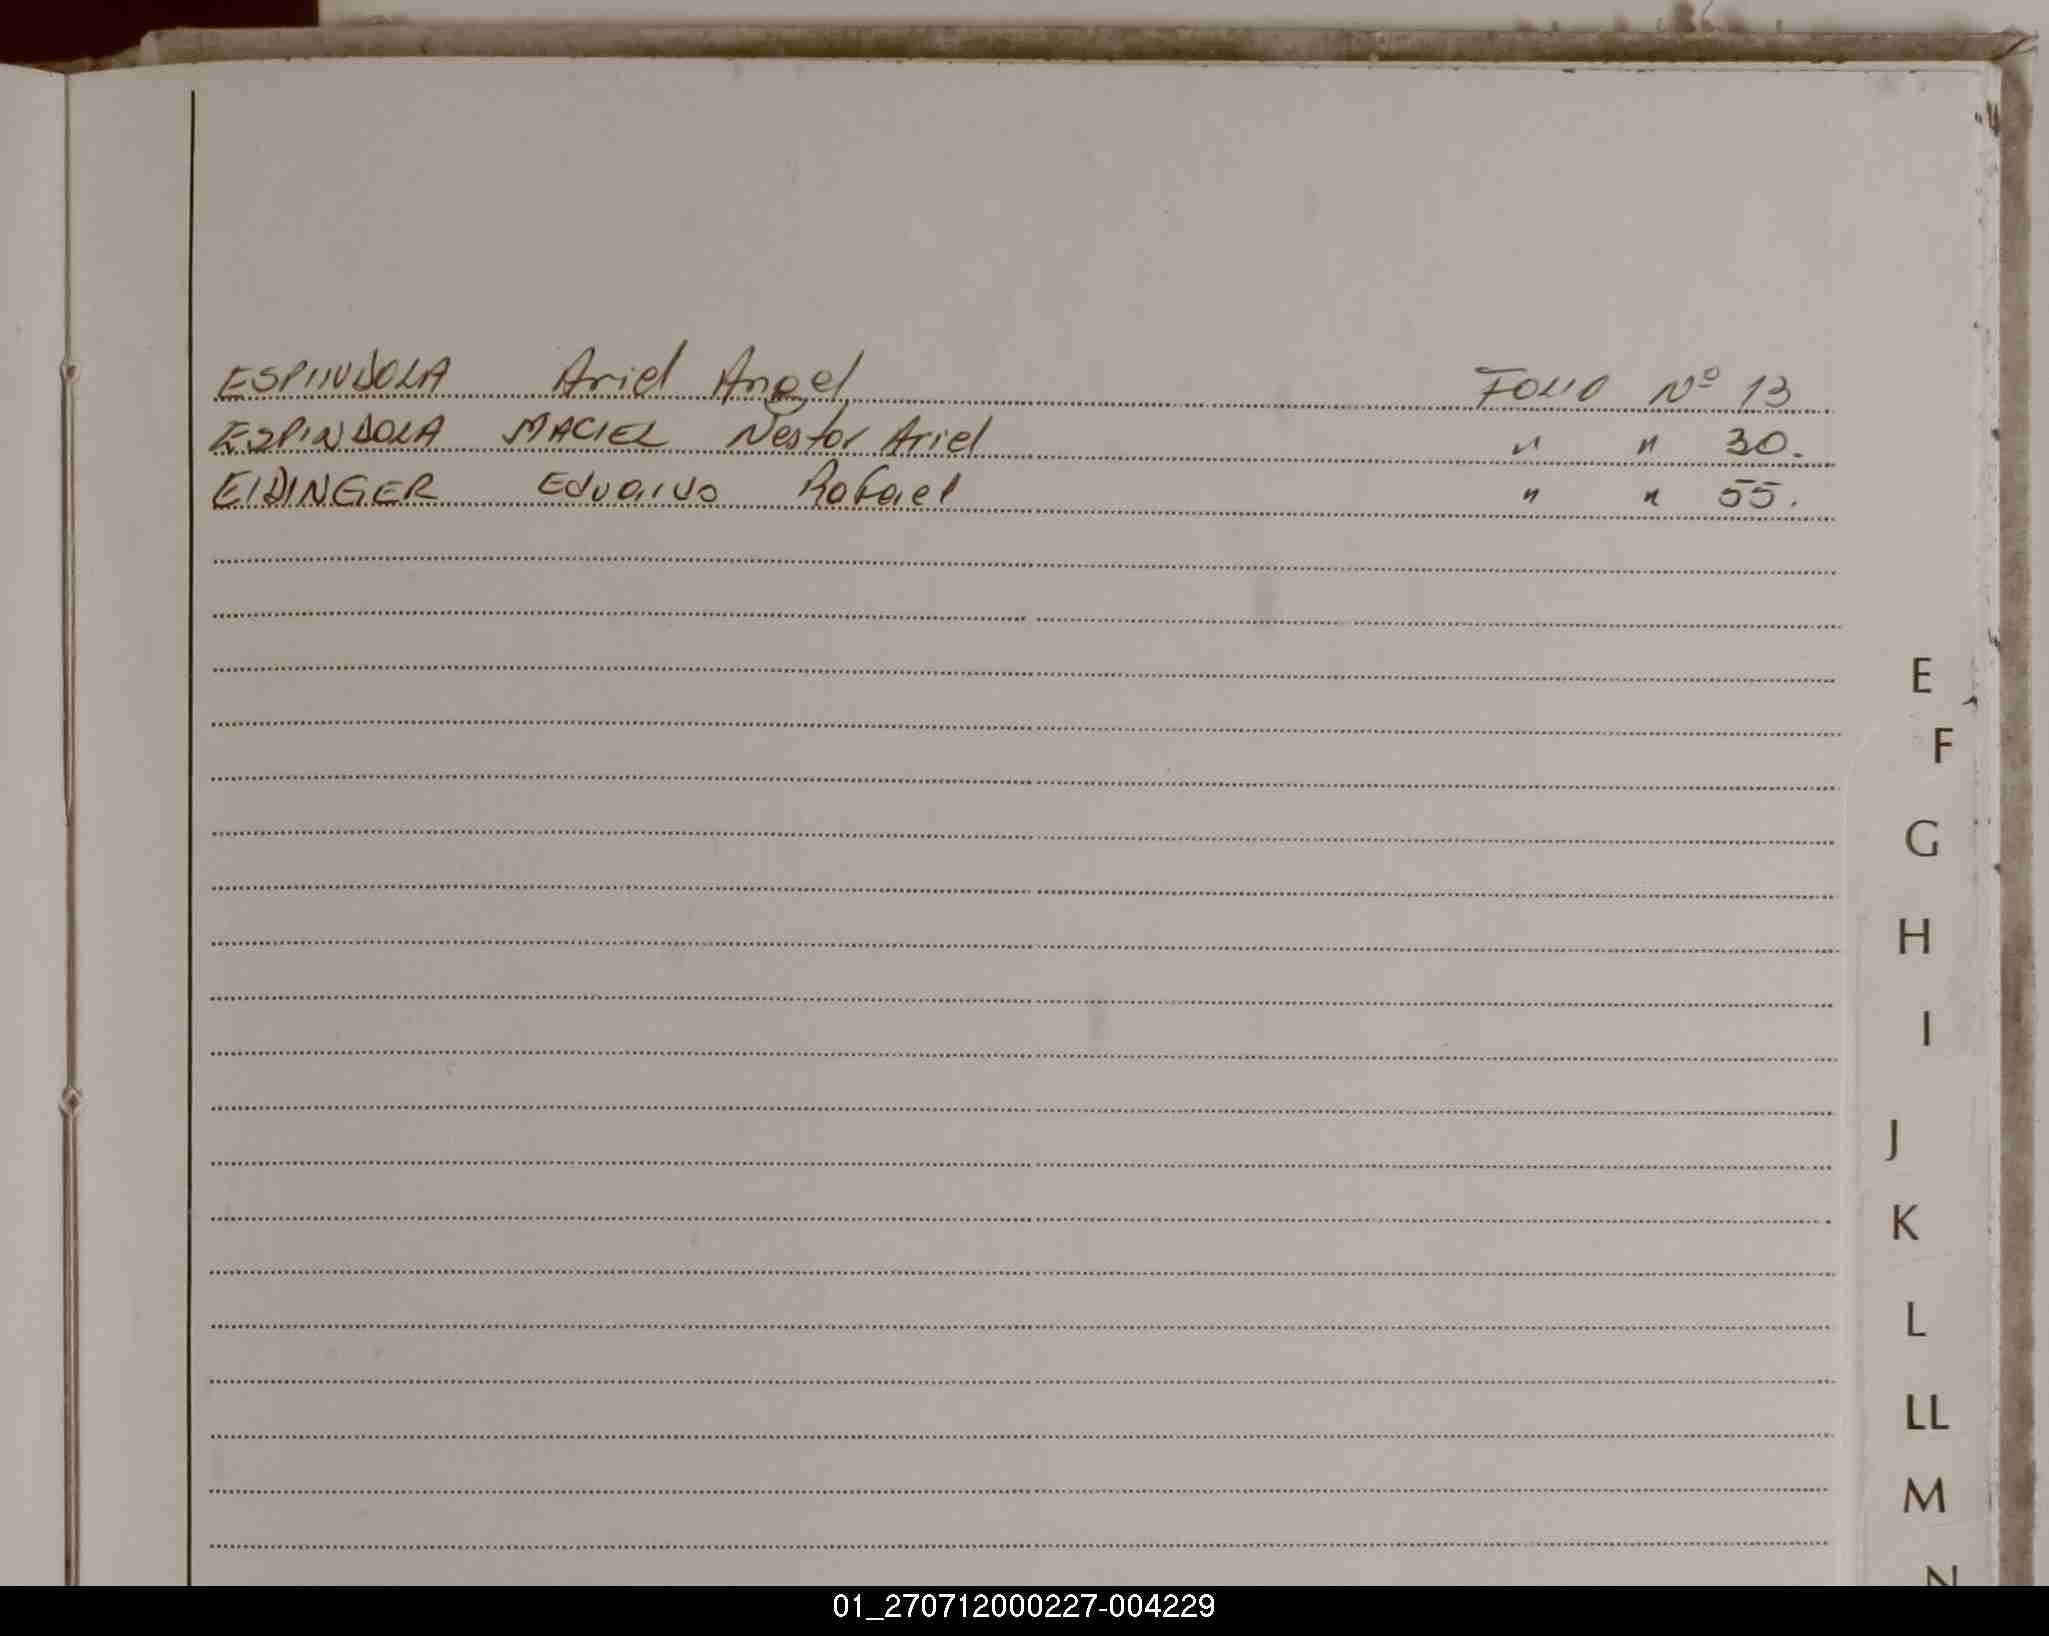 ESPINDOLA Ariel Angel FOLIO Nº 13
ESPINDOLA MACIEL Nestor Ariel " " 30.
EIDINGER Eduardo Rafael " " 55.
E
F
G
H
I
J
K
L
LL
M
N
01_270712000227-004229